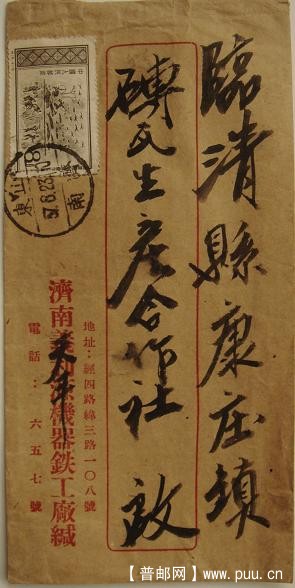 臨清縣康庄鎮
磚瓦生産合作社 啟
地址：經四路緯三路一〇八號
濟南
機器鉄工廠緘
電話：六五七號
中國人民郵政
南
【普邮网】www.puu.cn